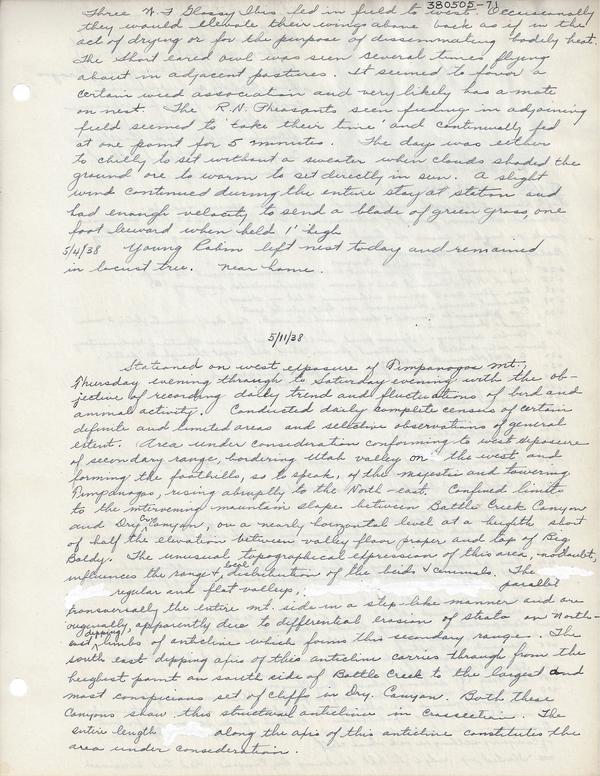 380505-71
Three W. F. Glossy Ibis fed in field to west. Occasionally
they would elevate their wings above back as if in the
act of drying or for the purpose of disseminating bodily heat.
The short eared owl was seen several times flying
about in adjacent pastures. It seemed to favor a
certain weed association and very likely has a mate
on nest. The R.N. Pheasants seen feeding in adjoining
field seemed to 'take their time' and continually fed
at one point for 5 minutes. The day was either
to chilly to set without a sweater when clouds shaded the
ground ore to warm to set directly in sun. A slight
wind continued during the entire stay at station and
had enough velocity to send a blade of green grass, one
foot leeward when held 1' high
5/4/38 Young Robin left nest today and remained
in locust tree. near home.
5/11/38
Stationed on west exposure of Timpanogos Mt.,
Thursday evening through to Saturday evening with the ob-
jective of recording daily trend and fluctuations of bird and
animal activity. Conducted daily complete census of certain
definite and limited areas and selective observations of general
extent. Area under consideration conforming to west exposure
of secondary range, bordering Utah valley on the west and
forming the foothills, so to speak, of the majestic and towering
Timpanogos, rising abruptly to the North-east. Confined limits
to the intervening mountain slope between Battle Creek Canyon
and Dry Canyon, on a nearly horizontal level at a heighth short
of half the elevation between valley floor proper and top of Big
Baldy. The unusual topographical expression of this area, no doubt,
influences the range & local distribution of the birds & animals. The
regular and flat valleys, parallel
transversally the entire mt. side in a step-like manner and are
originally, apparently due to differential erosion of strata on North-
east dipping limbs of anticline which forms this secondary range. The
south east dipping axis of this anticline carries through from the
heighest point on south side of Battle Creek to the largest and
most conspicious set of cliffs in Dry. Canyon. Both these
Canyons show this structural anticline in crossection. The
entire length along the axis of this anticline constitutes the
area under consideration.